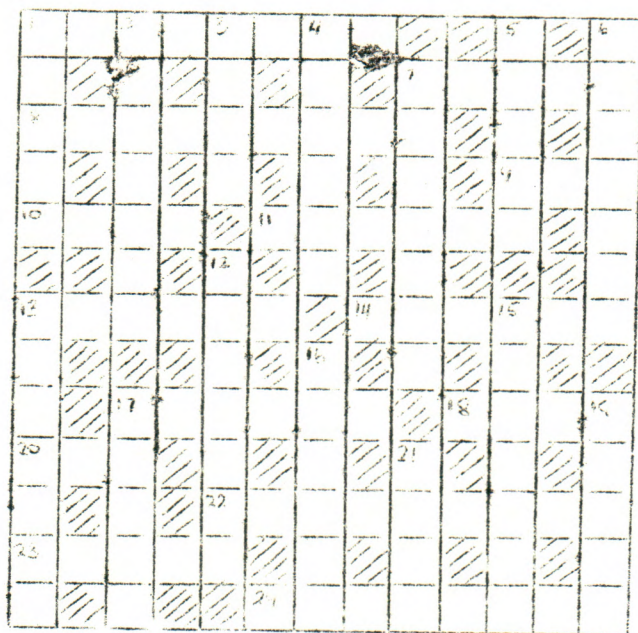 1 2 3 4 5 6
7
8
9
10 11
12
13 14 15
16
17 18 19
20 21
22
23
24